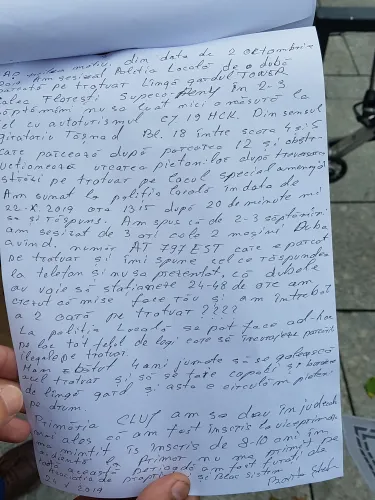 din data de 2 octombrie
Am sesizat Poliția Locală de o dubă
parcată pe trotuar lîngă gardul TOWER
Calea Florești în 2-3
săptămîni nu sa luat nici o măsură la
fel cu autoturismul CJ 19 HCK. Din sensul
giratoriu Tășnad Bl. 18 între scara 4 și 5
care parchează după parcarea 12 și obstr-
ucționează urcarea pietonilor după traversarea
străzii pe trotuar pe locul special amenajat
Am sunat la poliția locală în data de
22-X. 2019 ora 13 15 după 20 de minute mi
sa și răspuns. Am spus că de 2-3 săptămîni
am sesizat de 3 ori cele 2 mașini Duba
avînd număr AT 797 EST care e parcat
pe trotuar și îmi spune cel ce răspundea
la telefon și nu sa prezentat, că dubele
au voie să staționeze 24-48 de ore am
crezut că mise face rău și am întrebat
a 2 oară pe trotuar ????
La poliția Locală se pot face ad-hoc
pe loc tot felul de legi care să încurajeze parcări
ilegale pe trotuar.
4 ani jumate să se golească
acel trotuar și să se taie copacii și
de lîngă gard și asta e circulăm pietonii
pe drum.
Primăria CLUJ am so dau în judecată
mai ales că am fost înscris la viceprimar
ma mințit is înscris de 8-10 ani în
audiență la Primar nu ma primit pe
toată această perioadă am fost furați de
de pe
2019